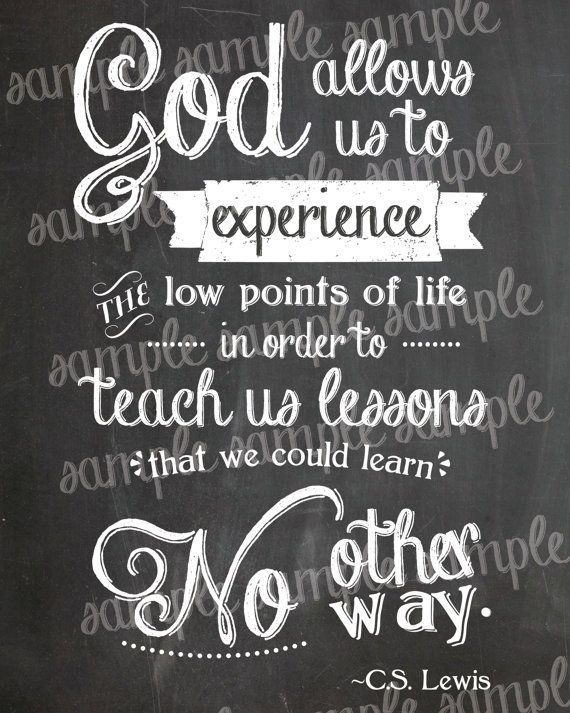 sample sample sample sample
God allows
us to
sample sample sample sample
experience
THE low points of life
in order to
sample sample sample sample
teach us lessons
sample sample sample sample
that we could learn
No other
way.
sample sample sample sample
~C.S. Lewis